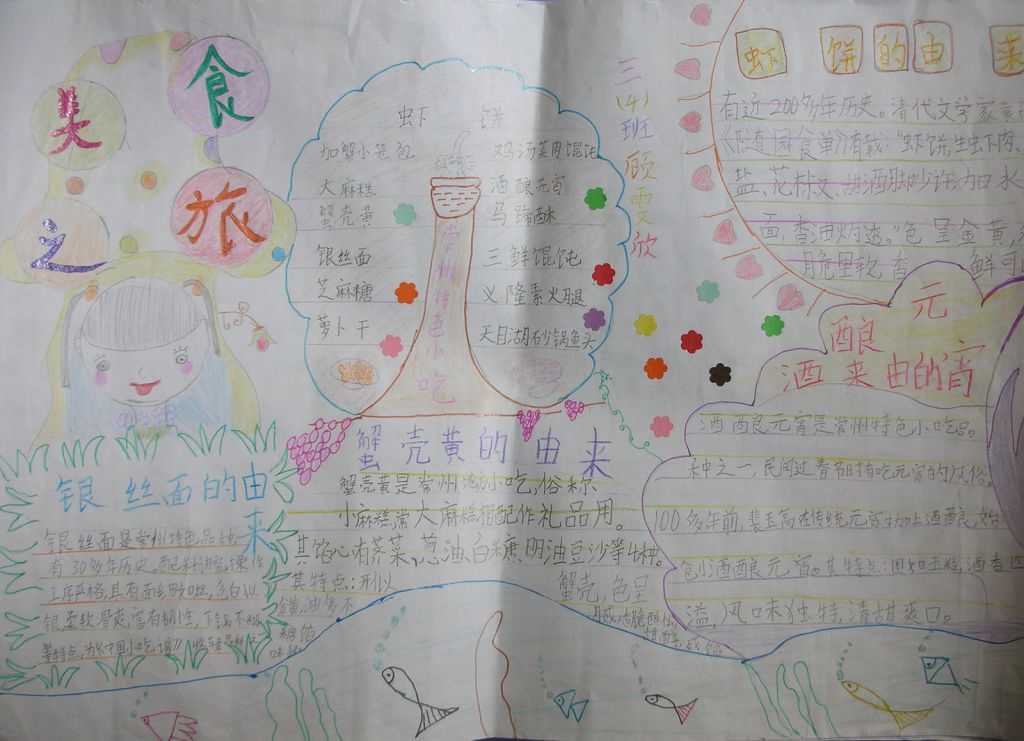 美食之旅
三(4)班 顾雯欣
虾 饼
加蟹小笼包
鸡汤菜肉馄饨
大麻糕
酒酿元宵
蟹壳黄
马蹄酥
银丝面
三鲜馄饨
芝麻糖
义隆素火腿
萝卜干
天目湖砂锅鱼头
常州特色小吃
虾饼的由来
有近200多年历史。清代文学家袁
《随园食单》有载:“虾饼,生虾肉、
盐、花椒、甜酒脚少许,加水
面,香油灼透。”色呈金黄,
脆里软,香 鲜可
酒酿元宵的由来
酒酿元宵是常州特色小吃品
种之一,民间过春节时有吃元宵的风俗。
100多年前,
在传统元宵中加上酒酿,始
包小酒酿元宵。其特点:圆如玉粒,酒香四
溢,风味独特,清甜爽口。
蟹壳黄的由来
蟹壳黄是常州地方小吃,俗称
小麻糕,常大麻糕相配作礼品用。
其馅心有荠菜、葱油、白糖、明油豆沙等4种。
其特点:形似
蟹壳,色呈
银丝面的由来
银丝面是常州特色品种,
有30多年历史。
工序严格,具有面细如丝,色白似
银,柔软滑爽,富有韧性,下锅不
等特点,为《中国小吃谱》